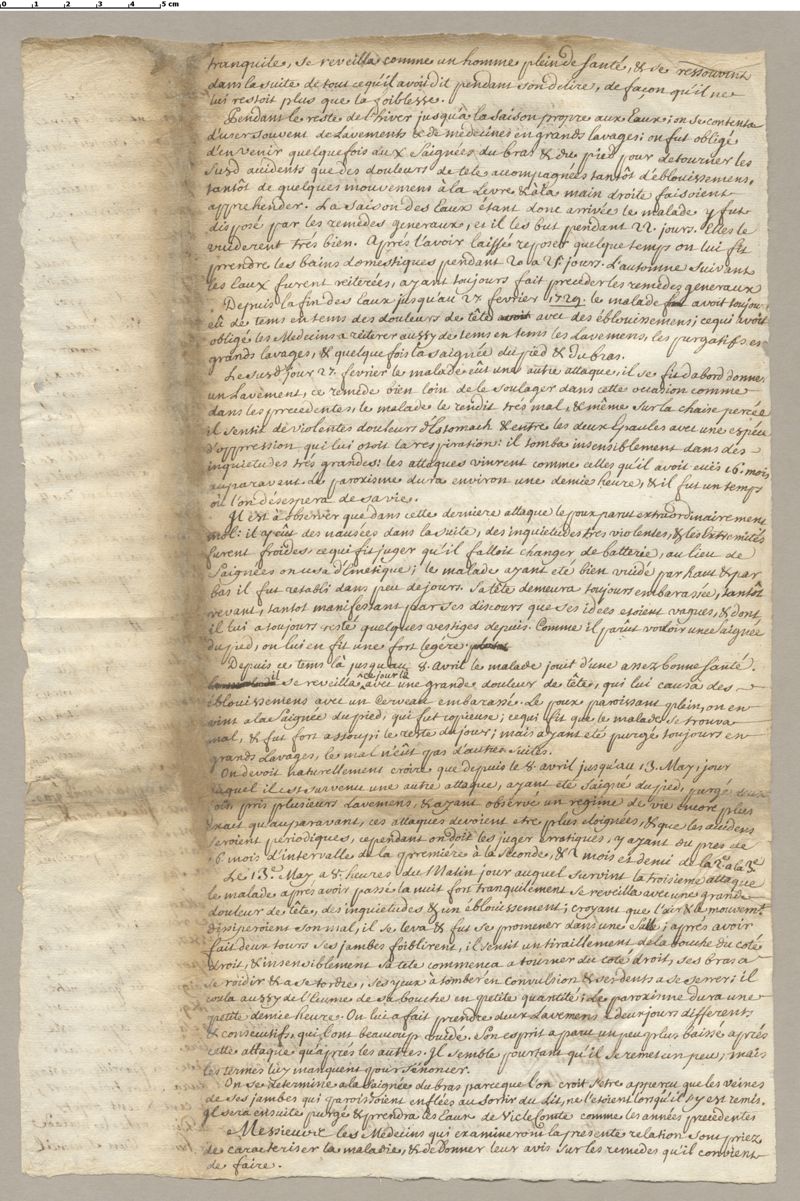 0 1 2 3 4 5 cm
tranquile, se reveilla comme un homme plein de santé, & se ressouvint
dans la suite de tout ce qu'il avoit dit pendant son delire, de façon qu'il ne
lui restoit plus que la foiblesse.
Pendant le reste de l'hiver jusqu'à la saison propre aux Eaux; on se contenta
d'user souvent de Lavements & de médecines en grands lavages; on fut obligé
d'en venir quelque fois aux Saignées du bras & du pied pour detourner les
susd accidents que des douleurs de tete acompagnées tantôt d'éblouissemens,
tantôt de quelques mouvemens à la Levre & à la main droite faisoient
apprehender. La saison des Eaux étant donc arrivée le malade y fut
disposé par les remèdes generaux, et il les but pendant 22. jours. Elles le
vuiderent trés bien. Aprés l'avoir laissé reposer quelque temps on lui fit
prendre les bains domestiques pendant 20 a 25 jours. L'automne suivant
les Eaux furent réiterées, ayant toujours fait preceder les remedes generaux
Depuis la fin des Eaux jusqu'au 27 fevrier 1729. le malade avoit toujou
eû de tems en tems des douleurs de tête avec des éblouissemens; ce qui avoit
obligé les Medecins a réiterer aussy de tems en tems les Lavemens, les purgatifs en
grands lavages, & quelque fois la saignée du pied & du bras.
Le susd jour 27. fevrier le malade eût une autre attaque, il se fit d'abord donner
un Lavement, ce remède bien loin de le soulager dans cette occasion comme
dans les precedentes, le malade le rendit trés mal, & même sur la chaise percée
il sentit de violentes douleurs d'Estomach & entre les deux Epaules avec une espece
d'oppression qui lui otoit la respiration: il tomba insensiblement dans des
inquietudes trés grandes: les attaques vinrent comme celles qu'il avoit eües 16. mois
auparavent. Le paroxisme dura environ une demie heure, & il fut un temps
où l'on désespera de sa vie.
Il est à observer que dans cette derniere attaque le poux parut extraordinairement
mol: il y eût des nausées dans la suite, des inquietudes tres violentes, & les Extremités
furent froides ce qui fit juger qu'il falloit changer de batterie, au lieu de
Saignées on usa d'Emetique; le malade ayant eté bien vuidé par haut & par
bas il fut retabli dans peu de jours. Sa tête demeura toujours embarassée, tantôt
revant, tantot manifestant par ses discours que ses idées etoient vagues, & dont
il lui a toujours resté quelques vestiges depuis. Comme il parût vouloir une saignée
du pied, on lui en fit une fort legére
Depuis ce tems là jusqu'au 8. Avril le malade jouit d'une assez bonne santé.
il se reveilla ce jour là avec une grande douleur de tête, qui lui causa des
éblouissemens avec un cerveau embarassé. Le poux paroissant plein, on en
vint a la Saignée du pied, qui fut copieuse; ce qui fit que le malade se trouva
mal, & fut fort assoupi le reste du jour; mais ayant eté purgé toujours en
grands Lavages, le mal n'eût pas d'autres suites.
On devoit naturellement croire que depuis le 8. avril jusqu'au 13. May, jour
auquel il est survenu une autre attaque, ayant eté saigné du pied, purgé deux
fois, pris plusieurs Lavemens, & ayant observé un régime de vie encore plus
exact qu'auparavant, ces attaques devoient etre plus eloignées, & que les accidens
seroient periodiques, cependant on doit les juger erratiques, y ayant eu prés de
16 mois d'intervalle de la premiere à la seconde, & 2 mois et demi de la 2e a la 3e
Le 13e May a 8. heures du Matin jour auquel survint la troisieme attaque
le malade aprés avoir passé la nuit fort tranquilement se reveilla avec une grande
douleur de tête, des inquietudes & un éblouissement; croyant que l'air & le mouvemt.
dissiperoient son mal, il se leva & fut se promener dans une Salle; aprés avoir
fait deux tours ses jambes foiblirent, il sentit un tiraillement de la bouche du coté
droit, & insensiblement sa tete commença a tourner du cote droit, ses bras a
se roidir & a se tordre, ses yeux à tomber en convulsion & ses dents a se serrer; il
coula aussy de l'Ecume de sa bouche en petite quantité; Le paroxisme dura une
petite demie heure. On lui a fait prendre deux Lavemens a deux jours différents
& consecutifs, qui l'ont beaucoup vuidé. Son esprit a paru un peu plus baissé aprés
cette attaque qu'aprés les autres. Il semble pourtant qu'il se remet un peu; mais
les termes luy manquent pour s'énoncer.
On se determine a la saignée du bras parceque l'on croit s'etre apperçu que les veines
de ses jambes qui paroissoient enflées au sortir du Lit, ne l'étoient lorsqu'il s'y est remis.
Il sera ensuite purgé & prendra les Eaux de Vic le Comte comme les années precedentes
Messieurs les Médecins qui examineront la presente relation sont priez
de caracteriser la maladie, & de donner leur avis sur les remedes qu'il convient
de faire.